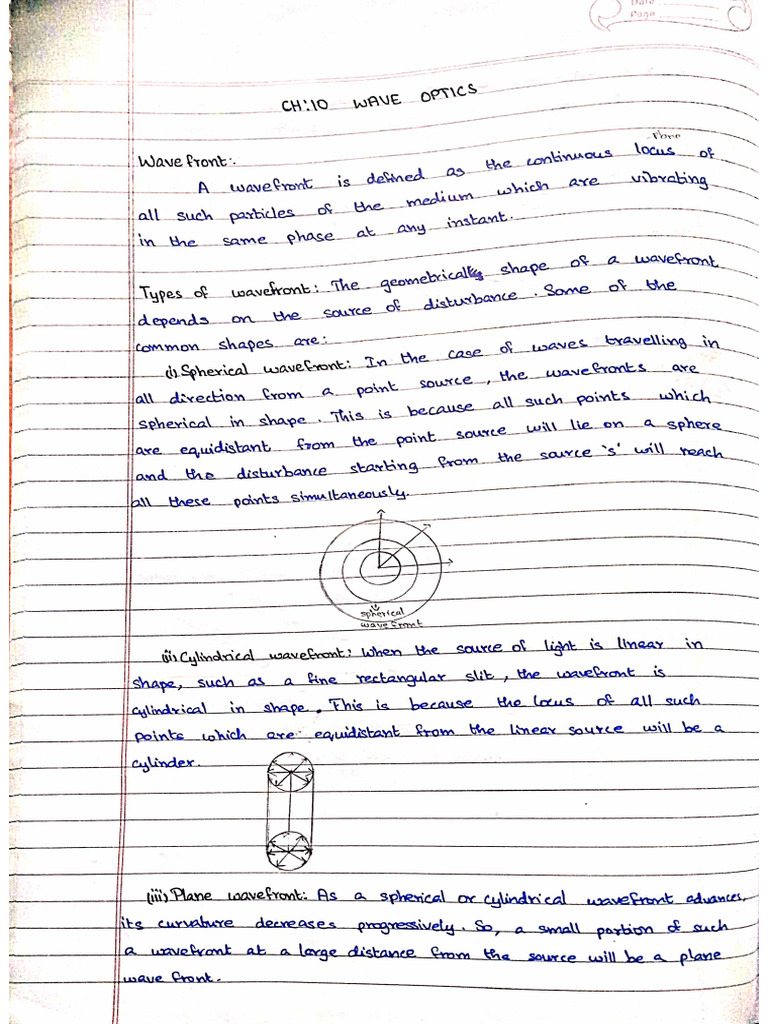 Date
Page
CH:10 WAVE OPTICS
Wavefront:.
A wavefront is defined as the continuous locus of
all such particles of the medium which are vibrating
in the same phase at any instant.
Types of wavefront: The geometrically shape of a wavefront
depends on the source of disturbance. Some of the
common shapes are:
(i) Spherical wavefront: In the case of waves travelling in
all direction from a point source, the wavefronts are
spherical in shape. This is because all such points which
are equidistant from the point source will lie on a sphere
and the disturbance starting from the source 's' will reach
all these points simultaneously.
spherical
wave front
(ii) Cylindrical wavefront: When the source of light is linear in
shape, such as a fine rectangular slit, the wavefront is
cylindrical in shape. This is because the locus of all such
points which are equidistant from the linear source will be a
cylinder.
(iii) Plane wavefront: As a spherical or cylindrical wavefront advances,
its curvature decreases progressively. So, a small portion of such
a wavefront at a large distance from the source will be a plane
wave front.